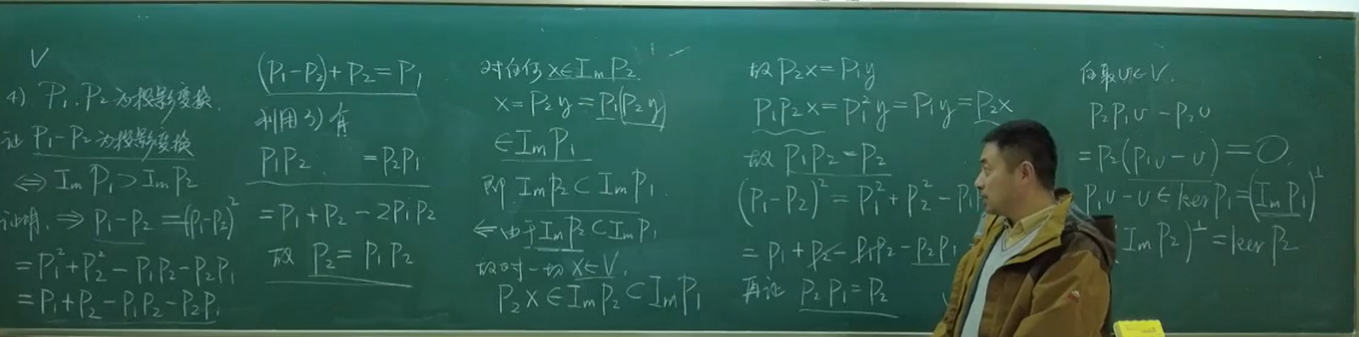 V
4) P₁, P₂ 为投影变换,
证 P₁-P₂ 为投影变换
⇔ Im P₁ ⊃ Im P₂
证明, ⇒ P₁-P₂ = (P₁-P₂)²
= P₁² + P₂² - P₁P₂ - P₂P₁
= P₁ + P₂ - P₁P₂ - P₂P₁
(P₁-P₂) + P₂ = P₁
利用3) 有
P₁P₂ = P₂P₁
= P₁ + P₂ - 2P₁P₂
故 P₂ = P₁P₂
对任何 x∈Im P₂
x = P₂y = P₁(P₂y)
∈ Im P₁
即 Im P₂ ⊂ Im P₁.
⇐ 由于 Im P₂ ⊂ Im P₁
故对一切 x∈V,
P₂x ∈ Im P₂ ⊂ Im P₁
故 P₂x = P₁y
P₁P₂x = P₁²y = P₁y = P₂x
故 P₁P₂ = P₂
(P₁-P₂)² = P₁² + P₂² - P₁
= P₁ + P₂ - P₁P₂ - P₂P₁
再证 P₂P₁ = P₂
任取 υ∈V.
P₂P₁υ - P₂υ
= P₂(P₁υ - υ) = 0.
P₁υ - υ ∈ ker P₁ = (Im P₁)⊥
Im P₂)⊥ = ker P₂